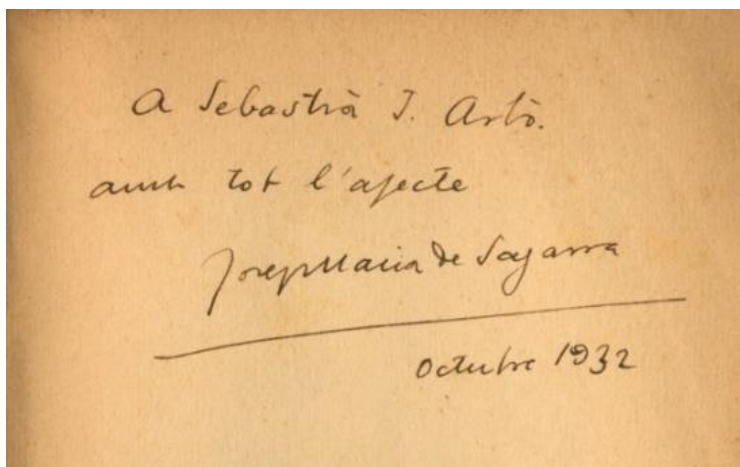 A Sebastià J. Arbó.
amb tot l'afecte
Josep Maria de Sagarra
Octubre 1932